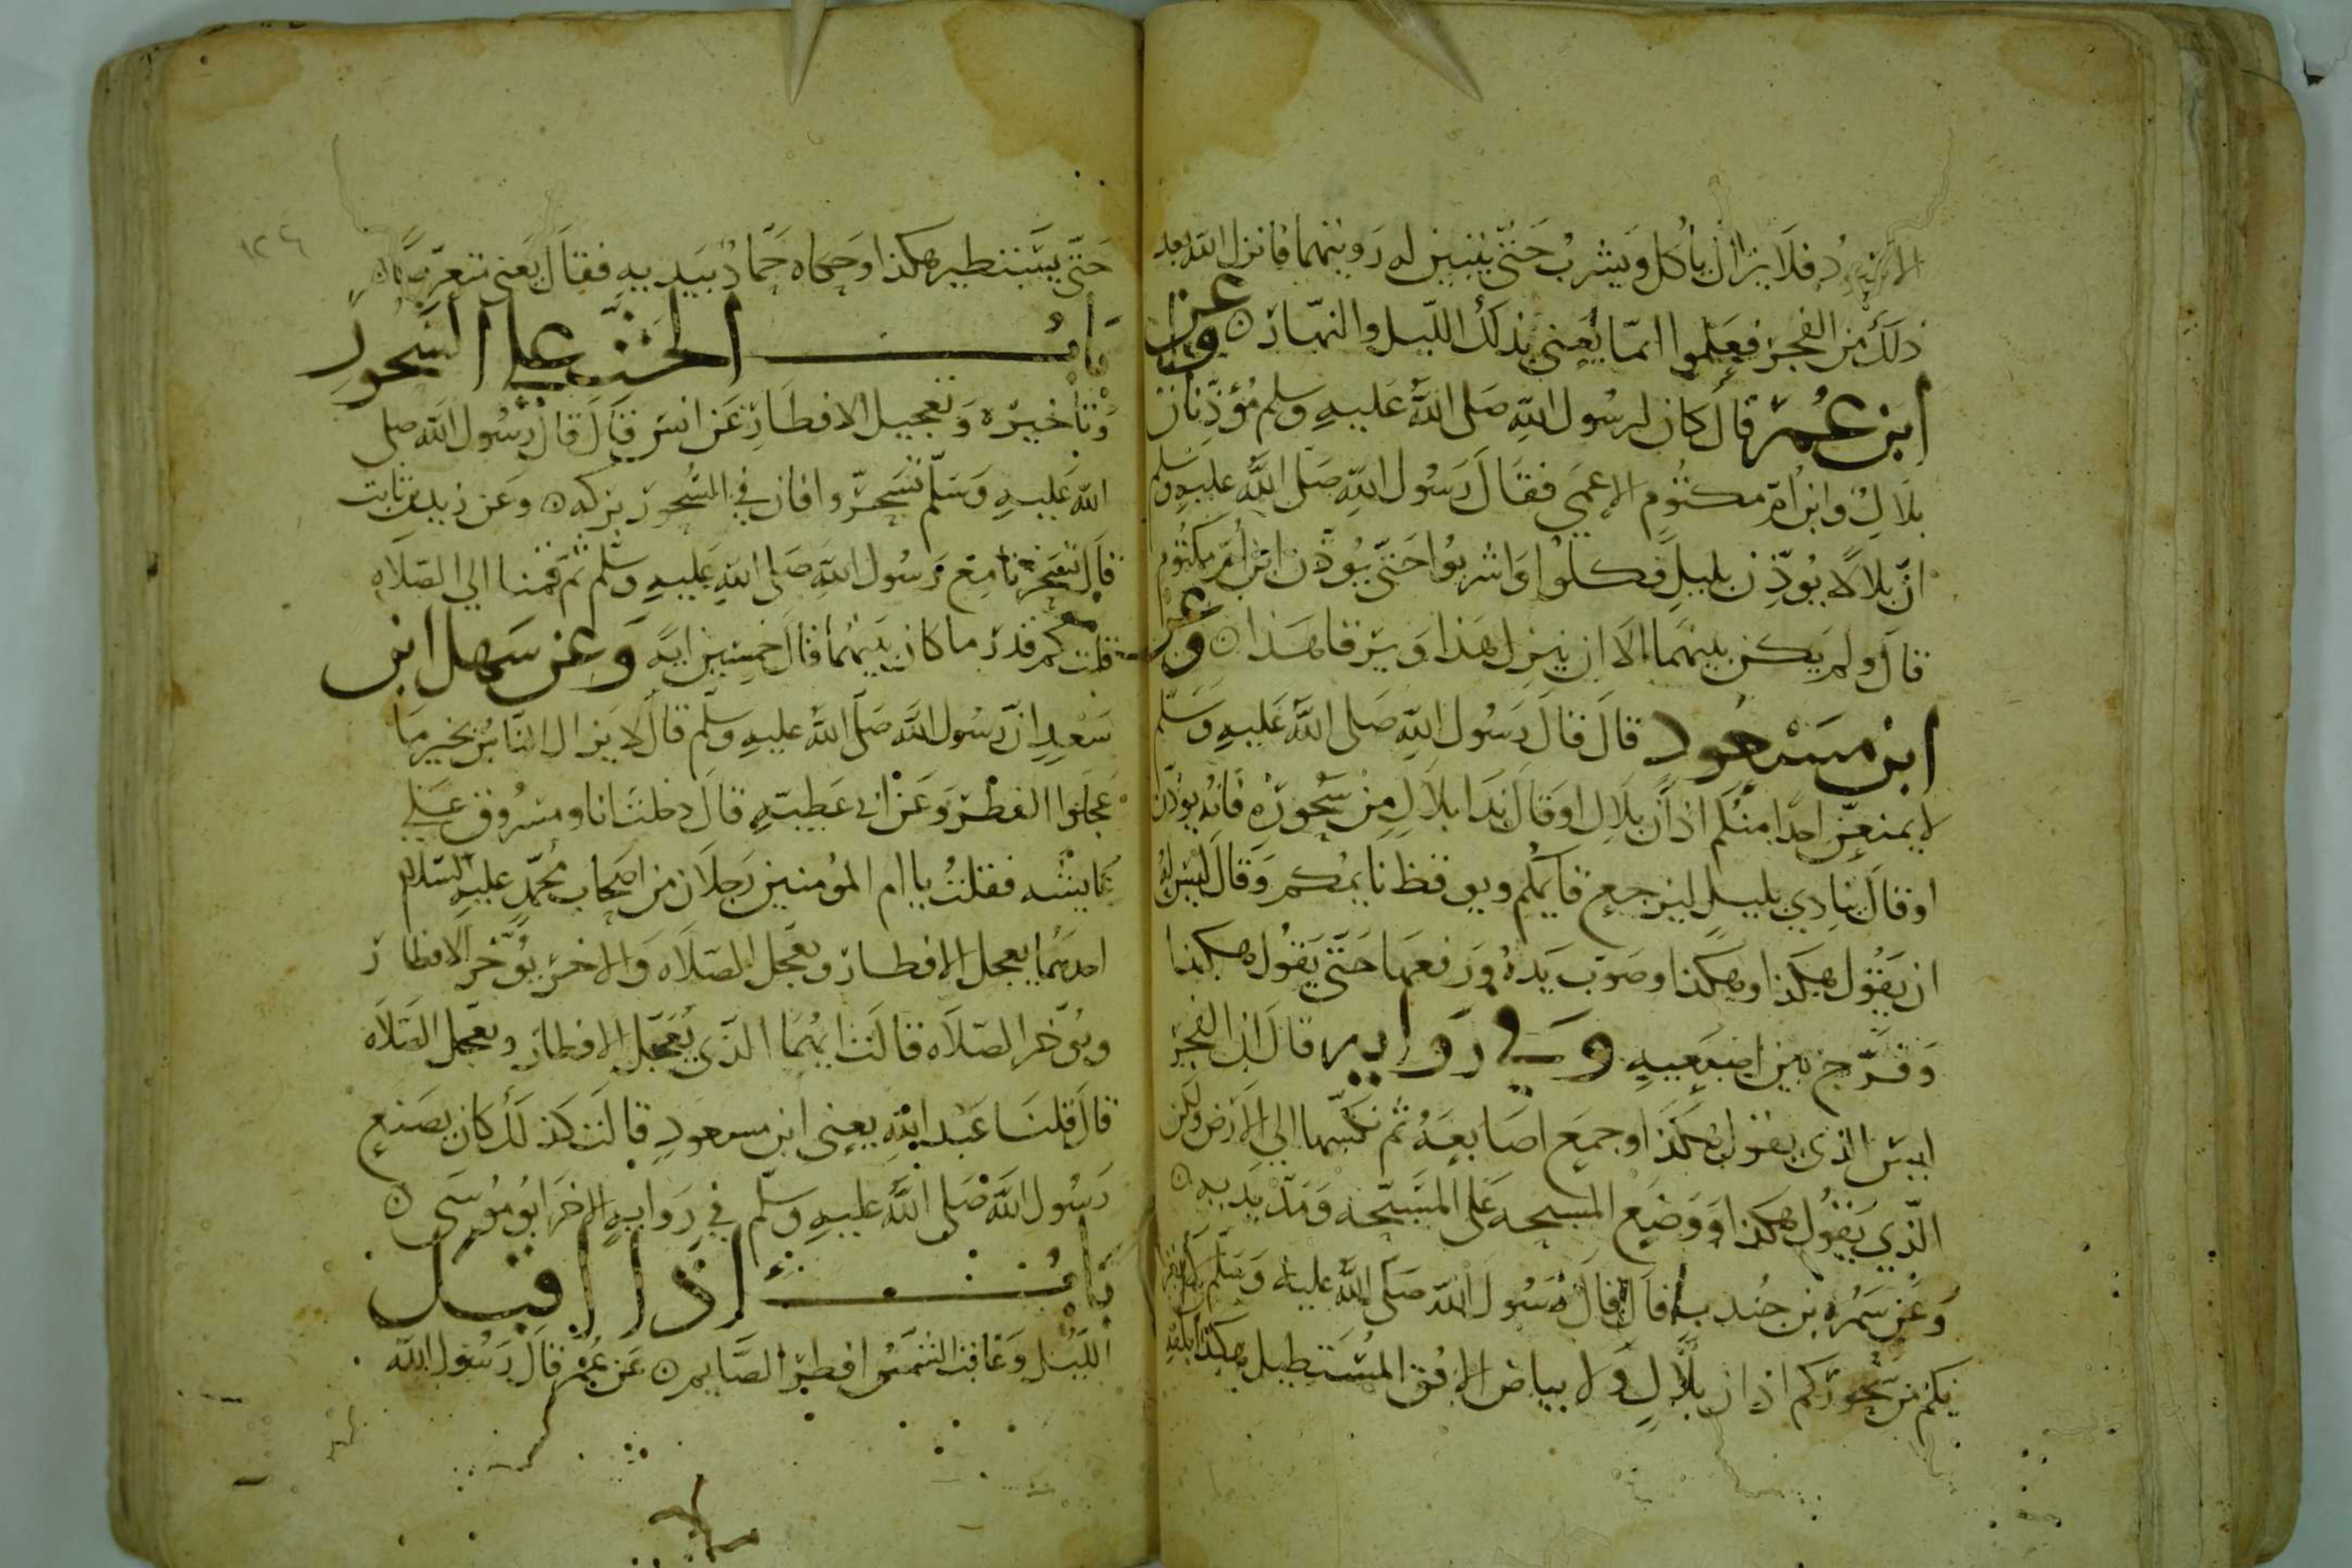 الاسود فلا يزال يأكل ويشرب حتى يتبين له رويتهما فانزل الله بعد
ذلك من الفجر فعلموا انما يعني بذلك الليل والنهار ۞ وعن
ابن عمر قال كان لرسول الله صلى الله عليه وسلم مؤذنان
بلال وابن ام مكتوم الاعمى فقال رسول الله صلى الله عليه وسلم
ان بلالا يوذن بليل فكلوا واشربوا حتى يوذن ابن ام مكتوم
قال ولم يكن بينهما الا ان ينزل هذا ويرقا هذا ۞ وعن
ابن مسعود قال قال رسول الله صلى الله عليه وسلم
لا يمنعن احدا منكم اذان بلال او قال ندا بلال من سحوره فانه يوذن
او قال ينادي بليل ليرجع قايمكم ويوقظ نايمكم وقال ليس له
ان يقول هكذا وهكذا وصوب يده ورفعها حتى يقول هكذا
وفرج بين اصبعيه وفي رواية قال ان الفجر
ليس الذي يقول هكذا وجمع اصابعه ثم نكسها الى الارض ولكن
الذي يقول هكذا ووضع المسبحة على المسبحة ومد يديه ۞
وعن سمرة بن جندب قال قال رسول الله صلى الله عليه وسلم لا يغر
نكم من سحوركم اذان بلال ولا بياض الافق المستطيل هكذا
حتى يستطير هكذا وحكاه حماد بيديه فقال يعني معترضا ۞
باب الحث على السحور
وتاخيره وتعجيل الافطار عن انس قال قال رسول الله صلى
الله عليه وسلم تسحروا فان في السحور بركه ۞ وعن زيد بن ثابت
قال تسحرنا مع رسول الله صلى الله عليه وسلم ثم قمنا الى الصلاه
قلت كم قدر ما كان بينهما قال خمسين ايه وعن سهل ابن
سعد ان رسول الله صلى الله عليه وسلم قال لا يزال الناس بخير ما
عجلوا الفطر وعن ابي عطيه قال دخلت انا ومسروق على
عايشه فقلت يا ام المومنين رجلان من اصحاب محمد عليه السلام
احدهما يعجل الافطار ويعجل الصلاه والاخر يوخر الافطار
ويوخر الصلاه قالت ايهما الذي يعجل الافطار ويعجل الصلاه
قال قلنا عبد الله يعني ابن مسعود قالت كذلك كان يصنع
رسول الله صلى الله عليه وسلم في رواية الاخر ابو موسى ۞
باب اذا اقبل
الليل وغابت الشمس افطر الصايم ۞ عن عمر قال رسول الله